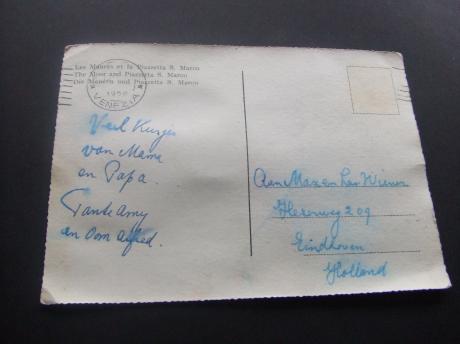 Les Maures et la Piazzetta S. Marco
The Moor and Piazzetta S. Marco
Die Mauern und Piazzetta S. Marco
1956
VENEZIA
Veel Kusjes
van Mama
en Papa.
Tante Amy
en Oom Alfred.
Aan Max en Wiener
Heezerweg 209
Eindhoven
Holland